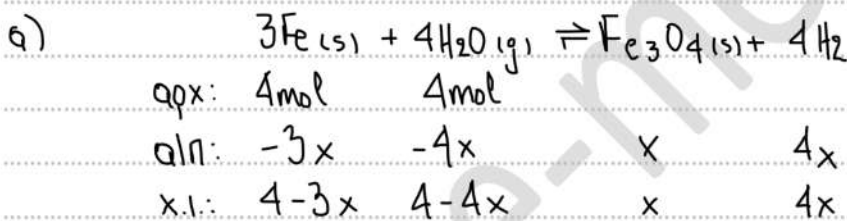 α) 3Fe (s) + 4H2O (g) ⇌ Fe3O4 (s) + 4H2
αρχ: 4mol 4mol
α/π: -3x -4x x 4x
χ.ι.: 4-3x 4-4x x 4x